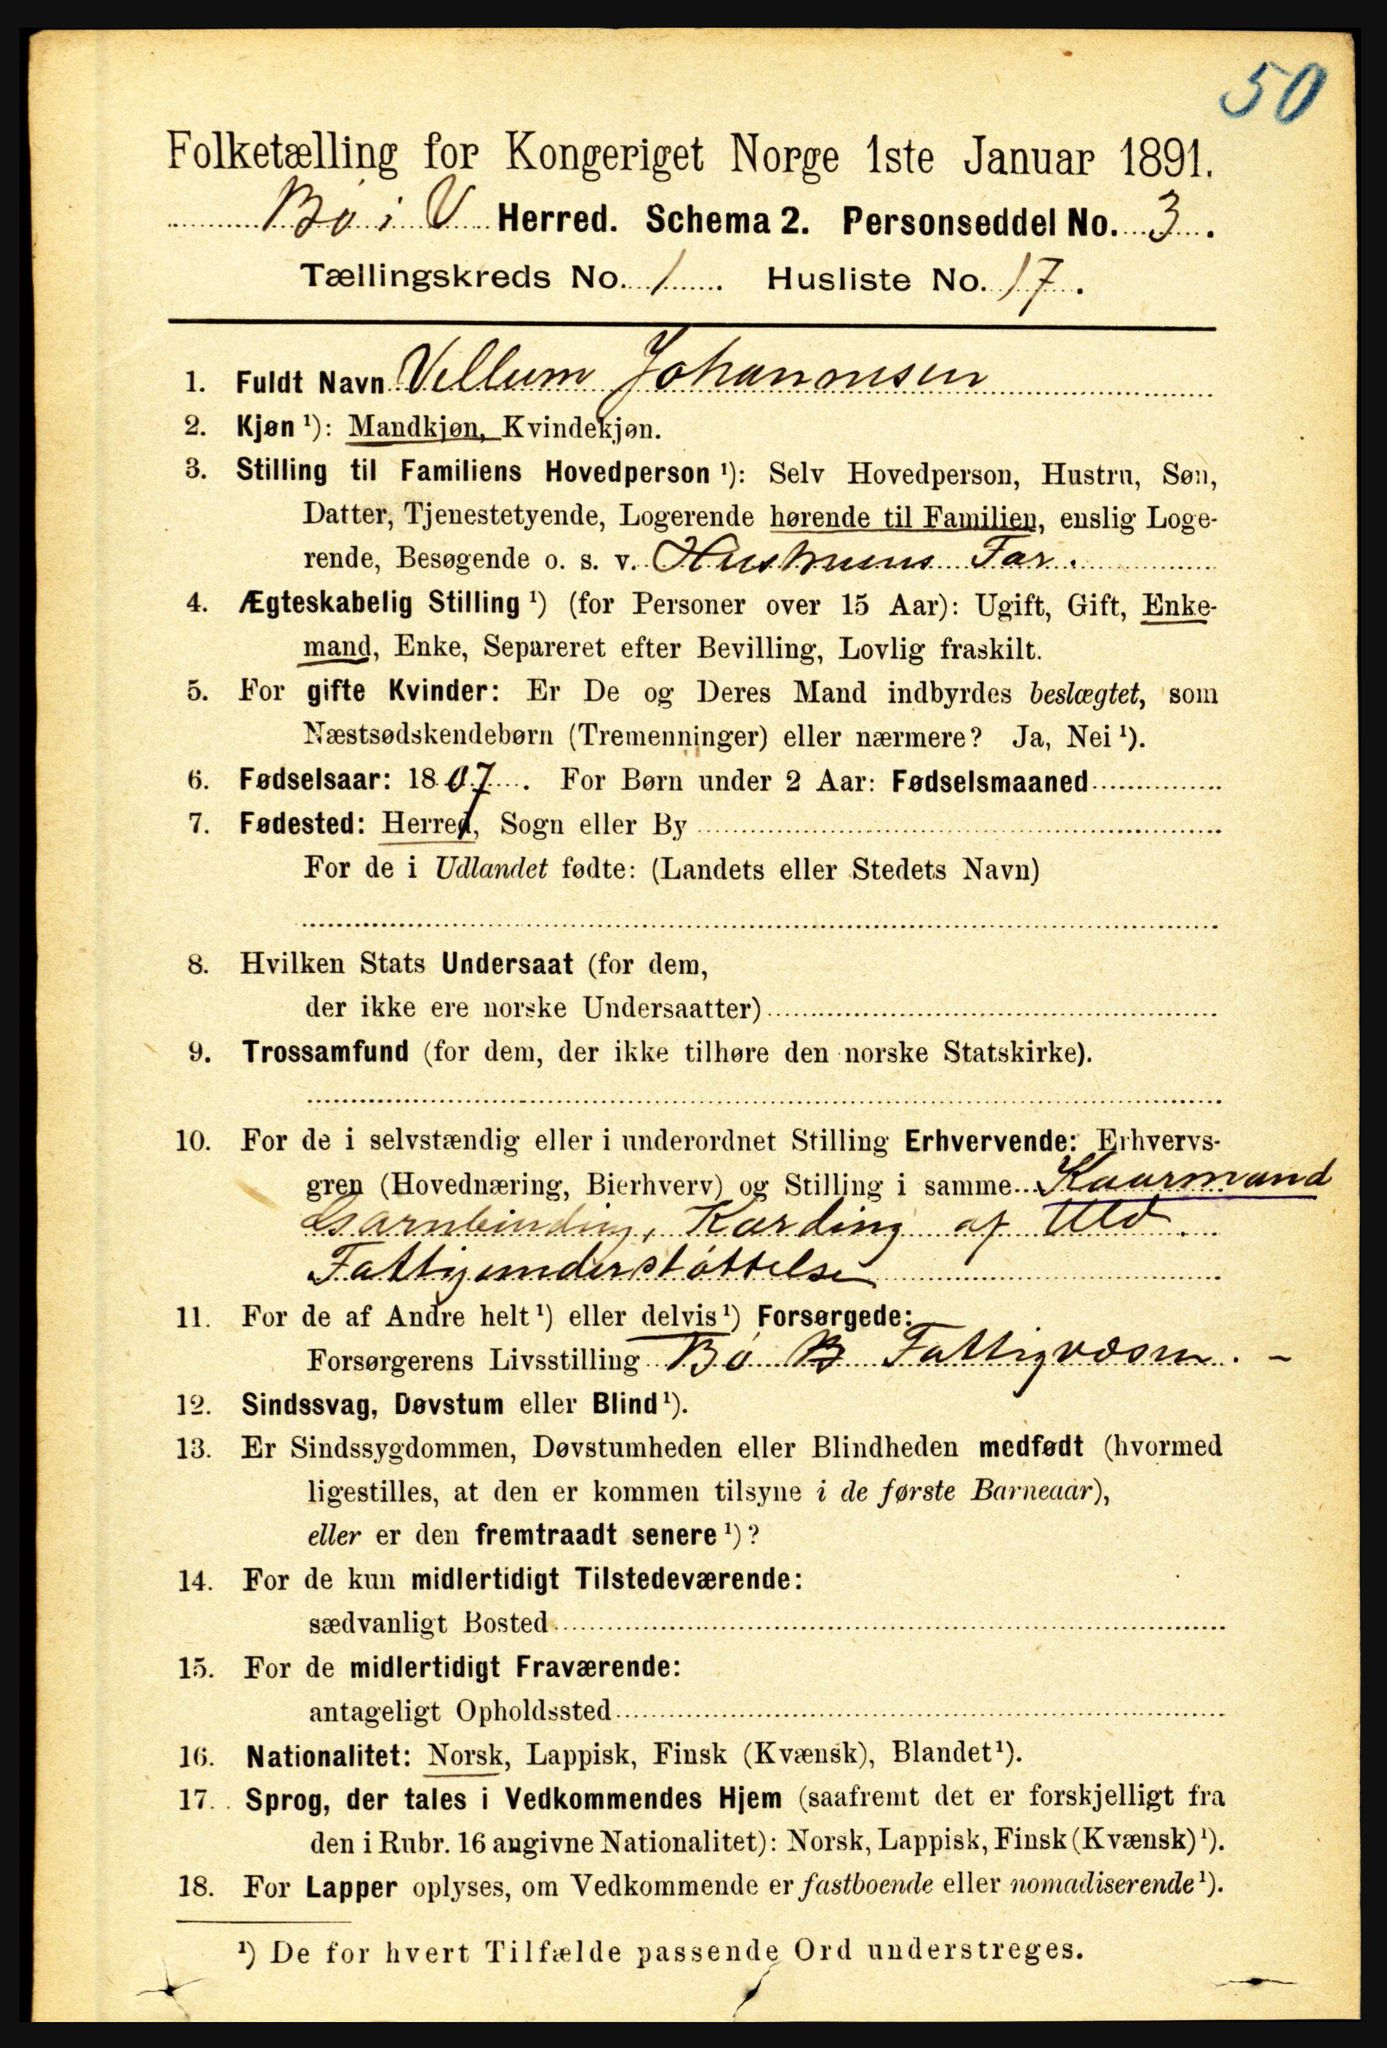 50
Folketælling for Kongeriget Norge 1ste Januar 1891.
Bø i V Herred. Schema 2. Personseddel No. 3.
Tællingskreds No. 1. Husliste No. 17.
1. Fuldt Navn Vellum Johannesen
2. Kjøn ¹): Mandkjøn, Kvindekjøn.
3. Stilling til Familiens Hovedperson ¹): Selv Hovedperson, Hustru, Søn,
Datter, Tjenestetyende, Logerende hørende til Familien, enslig Loge-
rende, Besøgende o. s. v. Hustruens Far.
4. Ægteskabelig Stilling ¹) (for Personer over 15 Aar): Ugift, Gift, Enke-
mand, Enke, Separeret efter Bevilling, Lovlig fraskilt.
5. For gifte Kvinder: Er De og Deres Mand indbyrdes beslægtet, som
Næstsødskendebørn (Tremenninger) eller nærmere? Ja, Nei ¹).
6. Fødselsaar: 1807. For Børn under 2 Aar: Fødselsmaaned
7. Fødested: Herred, Sogn eller By
For de i Udlandet fødte: (Landets eller Stedets Navn)
8. Hvilken Stats Undersaat (for dem,
der ikke ere norske Undersaatter)
9. Trossamfund (for dem, der ikke tilhøre den norske Statskirke).
10. For de i selvstændig eller i underordnet Stilling Erhvervende: Erhvervs-
gren (Hovednæring, Bierhverv) og Stilling i samme Kaarmand
Garnbinding, Karding af Uld.
Fattigunderstøttelse
11. For de af Andre helt ¹) eller delvis ¹) Forsørgede:
Forsørgerens Livsstilling Bø B Fattigvæsen. -
12. Sindssvag, Døvstum eller Blind ¹).
13. Er Sindssygdommen, Døvstumheden eller Blindheden medfødt (hvormed
ligestilles, at den er kommen tilsyne i de første Barneaar),
eller er den fremtraadt senere ¹)?
14. For de kun midlertidigt Tilstedeværende:
sædvanligt Bosted
15. For de midlertidigt Fraværende:
antageligt Opholdssted
16. Nationalitet: Norsk, Lappisk, Finsk (Kvænsk), Blandet ¹).
17. Sprog, der tales i Vedkommendes Hjem (saafremt det er forskjelligt fra
den i Rubr. 16 angivne Nationalitet): Norsk, Lappisk, Finsk (Kvænsk) ¹).
18. For Lapper oplyses, om Vedkommende er fastboende eller nomadiserende ¹).
¹) De for hvert Tilfælde passende Ord understreges.